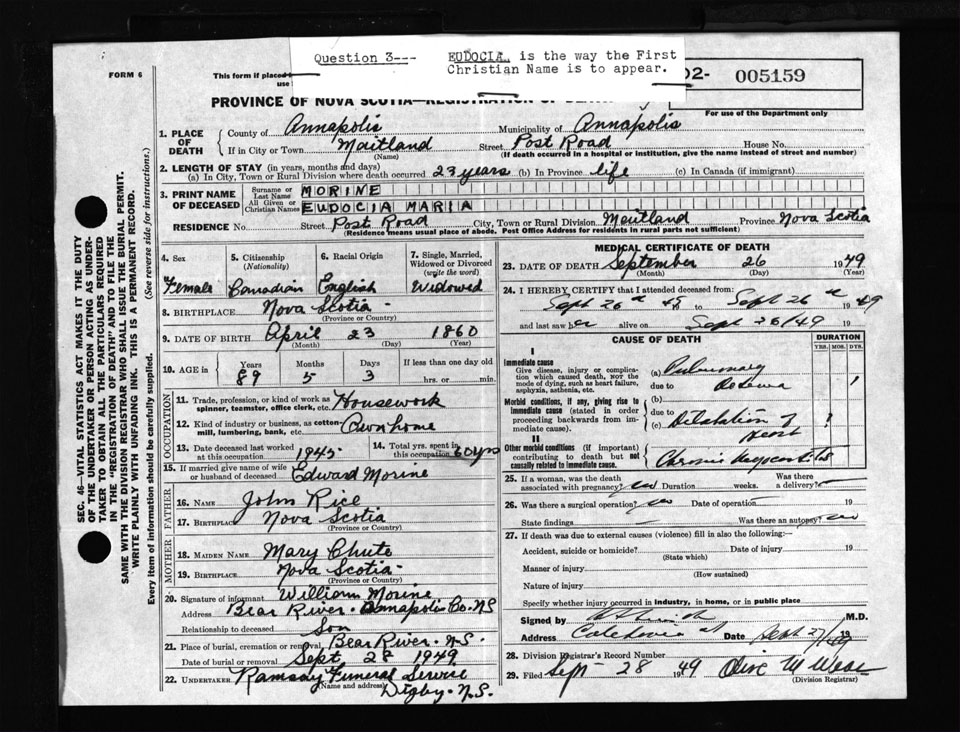 Question 3--- EUDOCIA. is the way the First
Christian Name is to appear.
FORM 6
This form if placed
use
02- 005159
For use of the Department only
PROVINCE OF NOVA SCOTIA—REGISTRATION OF DEATH
1. PLACE OF DEATH
County of Annapolis Municipality of Annapolis
If in City or Town Maitland Street Post Road House No.
(Name) (If death occurred in a hospital or institution, give the name instead of street and number)
2. LENGTH OF STAY (in years, months and days)
(a) In City, Town or Rural Division where death occurred 23 years (b) In Province life (c) In Canada (if immigrant)
3. PRINT NAME OF DECEASED
Surname or Last Name MORINE
All Given or Christian Names EUDOCIA MARIA
RESIDENCE No. Street Post Road City, Town or Rural Division Maitland Province Nova Scotia
(Residence means usual place of abode. Post Office Address for residents in rural parts not sufficient)
4. Sex Female
5. Citizenship (Nationality) Canadian
6. Racial Origin English
7. Single, Married, Widowed or Divorced (write the word) Widowed
8. BIRTHPLACE Nova Scotia
(Province or Country)
9. DATE OF BIRTH April 23 1860
(Month) (Day) (Year)
10. AGE in Years 89 Months 5 Days 3 If less than one day old
hrs. or min.
OCCUPATION
11. Trade, profession, or kind of work as spinner, teamster, office clerk, etc. Housework
12. Kind of industry or business, as cotton mill, lumbering, bank, etc. Own home
13. Date deceased last worked at this occupation 1945
14. Total yrs. spent in this occupation 60 yrs
15. If married give name of wife or husband of deceased Edward Morine
FATHER
16. NAME John Rice
17. BIRTHPLACE Nova Scotia
(Province or Country)
MOTHER
18. MAIDEN NAME Mary Chute
19. BIRTHPLACE Nova Scotia
(Province or Country)
20. Signature of informant William Morine
Address Bear River Annapolis Co. N.S
Relationship to deceased Son
21. Place of burial, cremation or removal Bear River. N.S.
Date of burial or removal Sept. 28 1949
22. UNDERTAKER Ramsay Funeral Service
(Name and address) Digby. N.S.
MEDICAL CERTIFICATE OF DEATH
23. DATE OF DEATH September 26 1949
(Month) (Day) (Year)
24. I HEREBY CERTIFY that I attended deceased from:
Sept 26th 49 to Sept 26th 1949
and last saw her alive on Sept 26/49 19
CAUSE OF DEATH
DURATION
YRS. MOS. DYS.
I
Immediate cause
Give disease, injury or complication which caused death, NOT the mode of dying, such as heart failure, asphyxia, asthenia, etc.
(a) Pulmonary
due to Oedema 1
Morbid conditions, if any, giving rise to immediate cause (stated in order proceeding backwards from immediate cause).
(b)
due to
(c) Dilatation of Heart
II
Other morbid conditions (if important) contributing to death but not causally related to immediate cause.
Chronic Myocarditis
25. If a woman, was the death associated with pregnancy? no Duration weeks. Was there a delivery?
26. Was there a surgical operation? no Date of operation 19
State findings Was there an autopsy? no
27. If death was due to external causes (violence) fill in also the following:—
Accident, suicide or homicide? Date of injury 19
(State which)
Manner of injury
(How sustained)
Nature of injury
Specify whether injury occurred in industry, in home, or in public place
Signed by M.D.
Address Caledonia Date Sept 27/49 19
28. Division Registrar's Record Number
29. Filed Sept 28 1949 Olive M
(Division Registrar)
SEC. 46—VITAL STATISTICS ACT MAKES IT THE DUTY
OF THE UNDERTAKER OR PERSON ACTING AS UNDER-
TAKER TO OBTAIN ALL THE PARTICULARS REQUIRED
IN THE "REGISTRATION OF DEATH" AND TO FILE THE
SAME WITH THE DIVISION REGISTRAR WHO SHALL ISSUE THE BURIAL PERMIT.
WRITE PLAINLY WITH UNFADING INK. THIS IS A PERMANENT RECORD.
Every item of information should be carefully supplied. (See reverse side for instructions.)